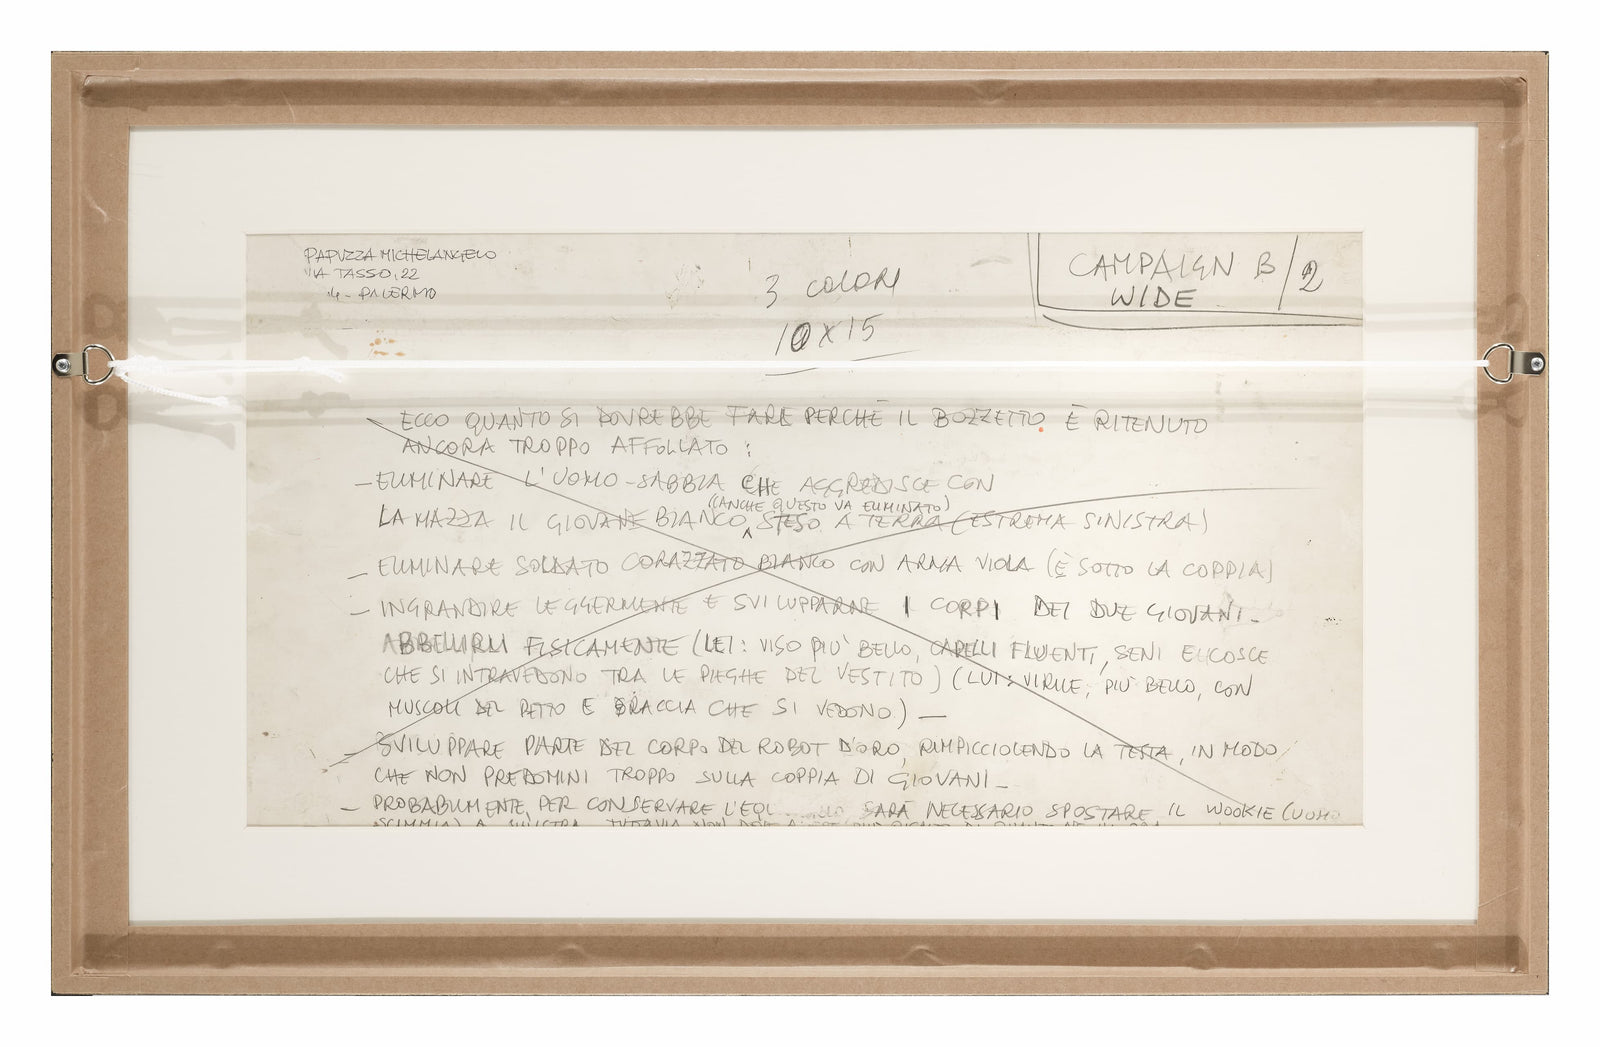 PAPUZZA MICHELANGELO
VIA TASSO, 22
4 - PALERMO
3 COLORI
10 X 15
CAMPAIGN B/2
WIDE
ECCO QUANTO SI DOVREBBE FARE PERCHÉ IL BOZZETTO È RITENUTO
ANCORA TROPPO AFFOLLATO :
— ELIMINARE L'UOMO-SABBIA CHE AGGREDISCE CON
(ANCHE QUESTO VA ELIMINATO)
LA MAZZA IL GIOVANE BIANCO, STESO A TERRA (ESTREMA SINISTRA)
— ELIMINARE SOLDATO CORAZZATO BIANCO CON ARMA VIOLA (È SOTTO LA COPPIA)
— INGRANDIRE LEGGERMENTE E SVILUPPARNE I CORPI DEI DUE GIOVANI -
ABBELLIRLI FISICAMENTE (LEI: VISO PIU' BELLO, CAPELLI FLUENTI, SENI E COSCE
CHE SI INTRAVEDONO TRA LE PIEGHE DEL VESTITO) (LUI: VIRILE, PIU' BELLO, CON
MUSCOLI DEL PETTO E BRACCIA CHE SI VEDONO) —
— SVILUPPARE PARTE DEL CORPO DEL ROBOT D'ORO, RIMPICCIOLENDO LA TESTA, IN MODO
CHE NON PREDOMINI TROPPO SULLA COPPIA DI GIOVANI -
— PROBABILMENTE, PER CONSERVARE L'EQU SARÀ NECESSARIO SPOSTARE IL WOOKIE (UOMO
SCIMMIA) A SINISTRA. TUTTAVIA NON DEVE